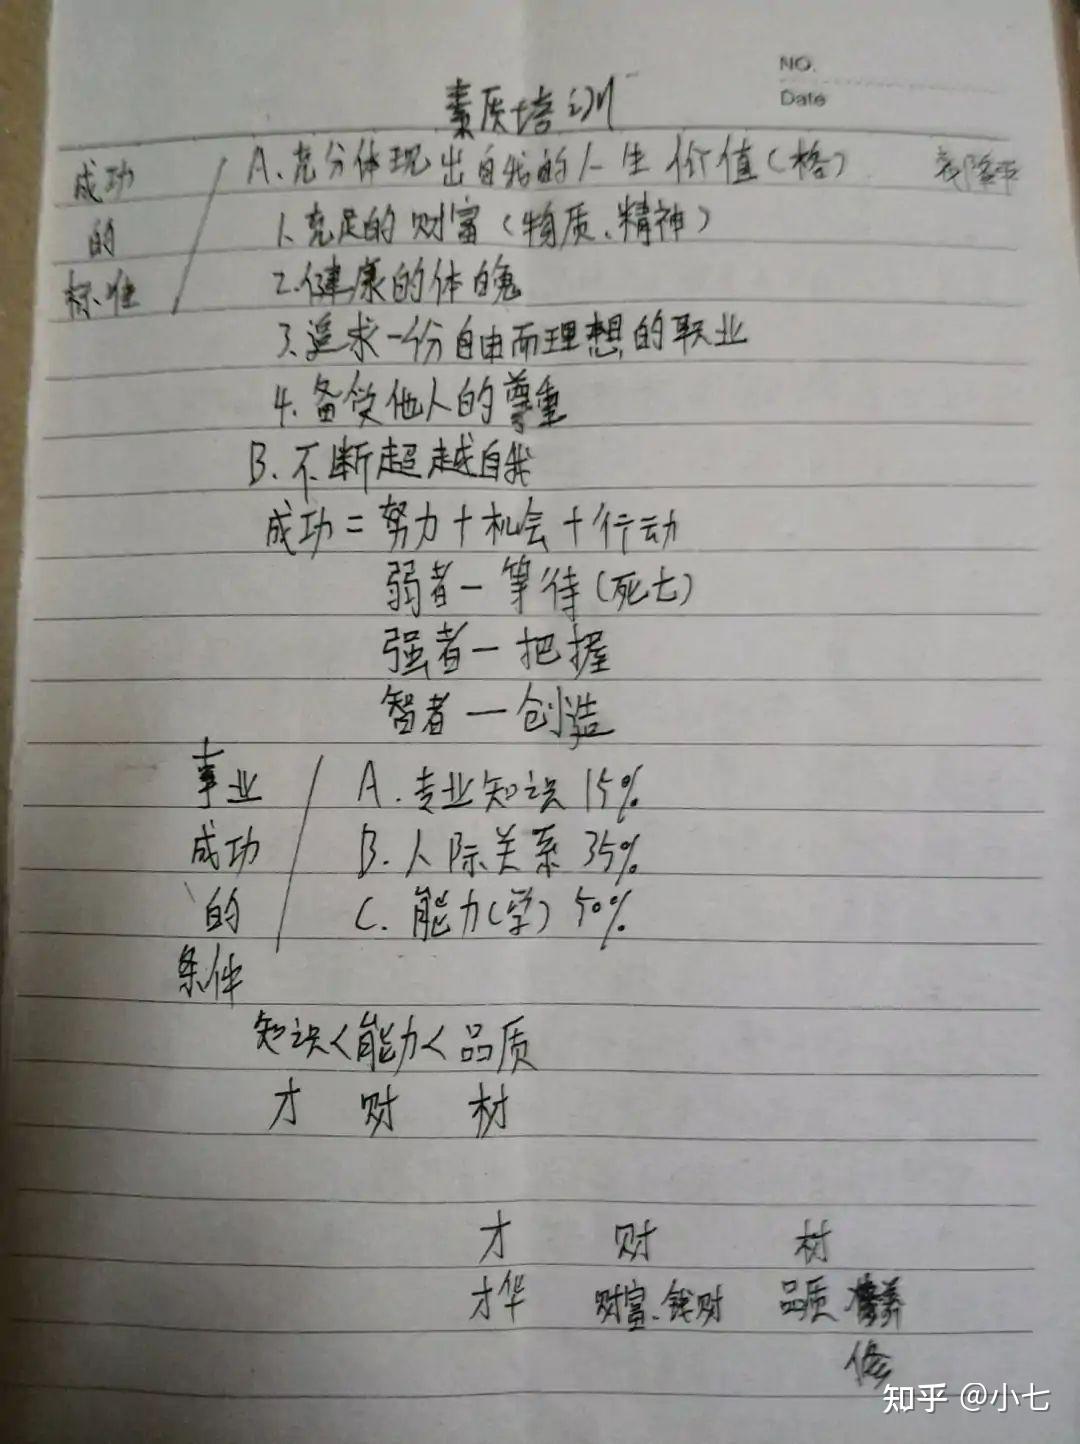 NO.
Date
素质培训
成功的标准
A.充分体现出自我的人生价值(格) 袁隆平
1.充足的财富(物质、精神)
2.健康的体魄
3.追求一份自由而理想的职业
4.备受他人的尊重
B.不断超越自我
成功=努力+机会+行动
弱者-等待(死亡)
强者-把握
智者-创造
事业成功的条件
A.专业知识 15%
B.人际关系 35%
C.能力(学) 50%
知识<能力<品质
才 财 材
才 财 材
才华 财富、钱财 品质 养
修
知乎 @小七